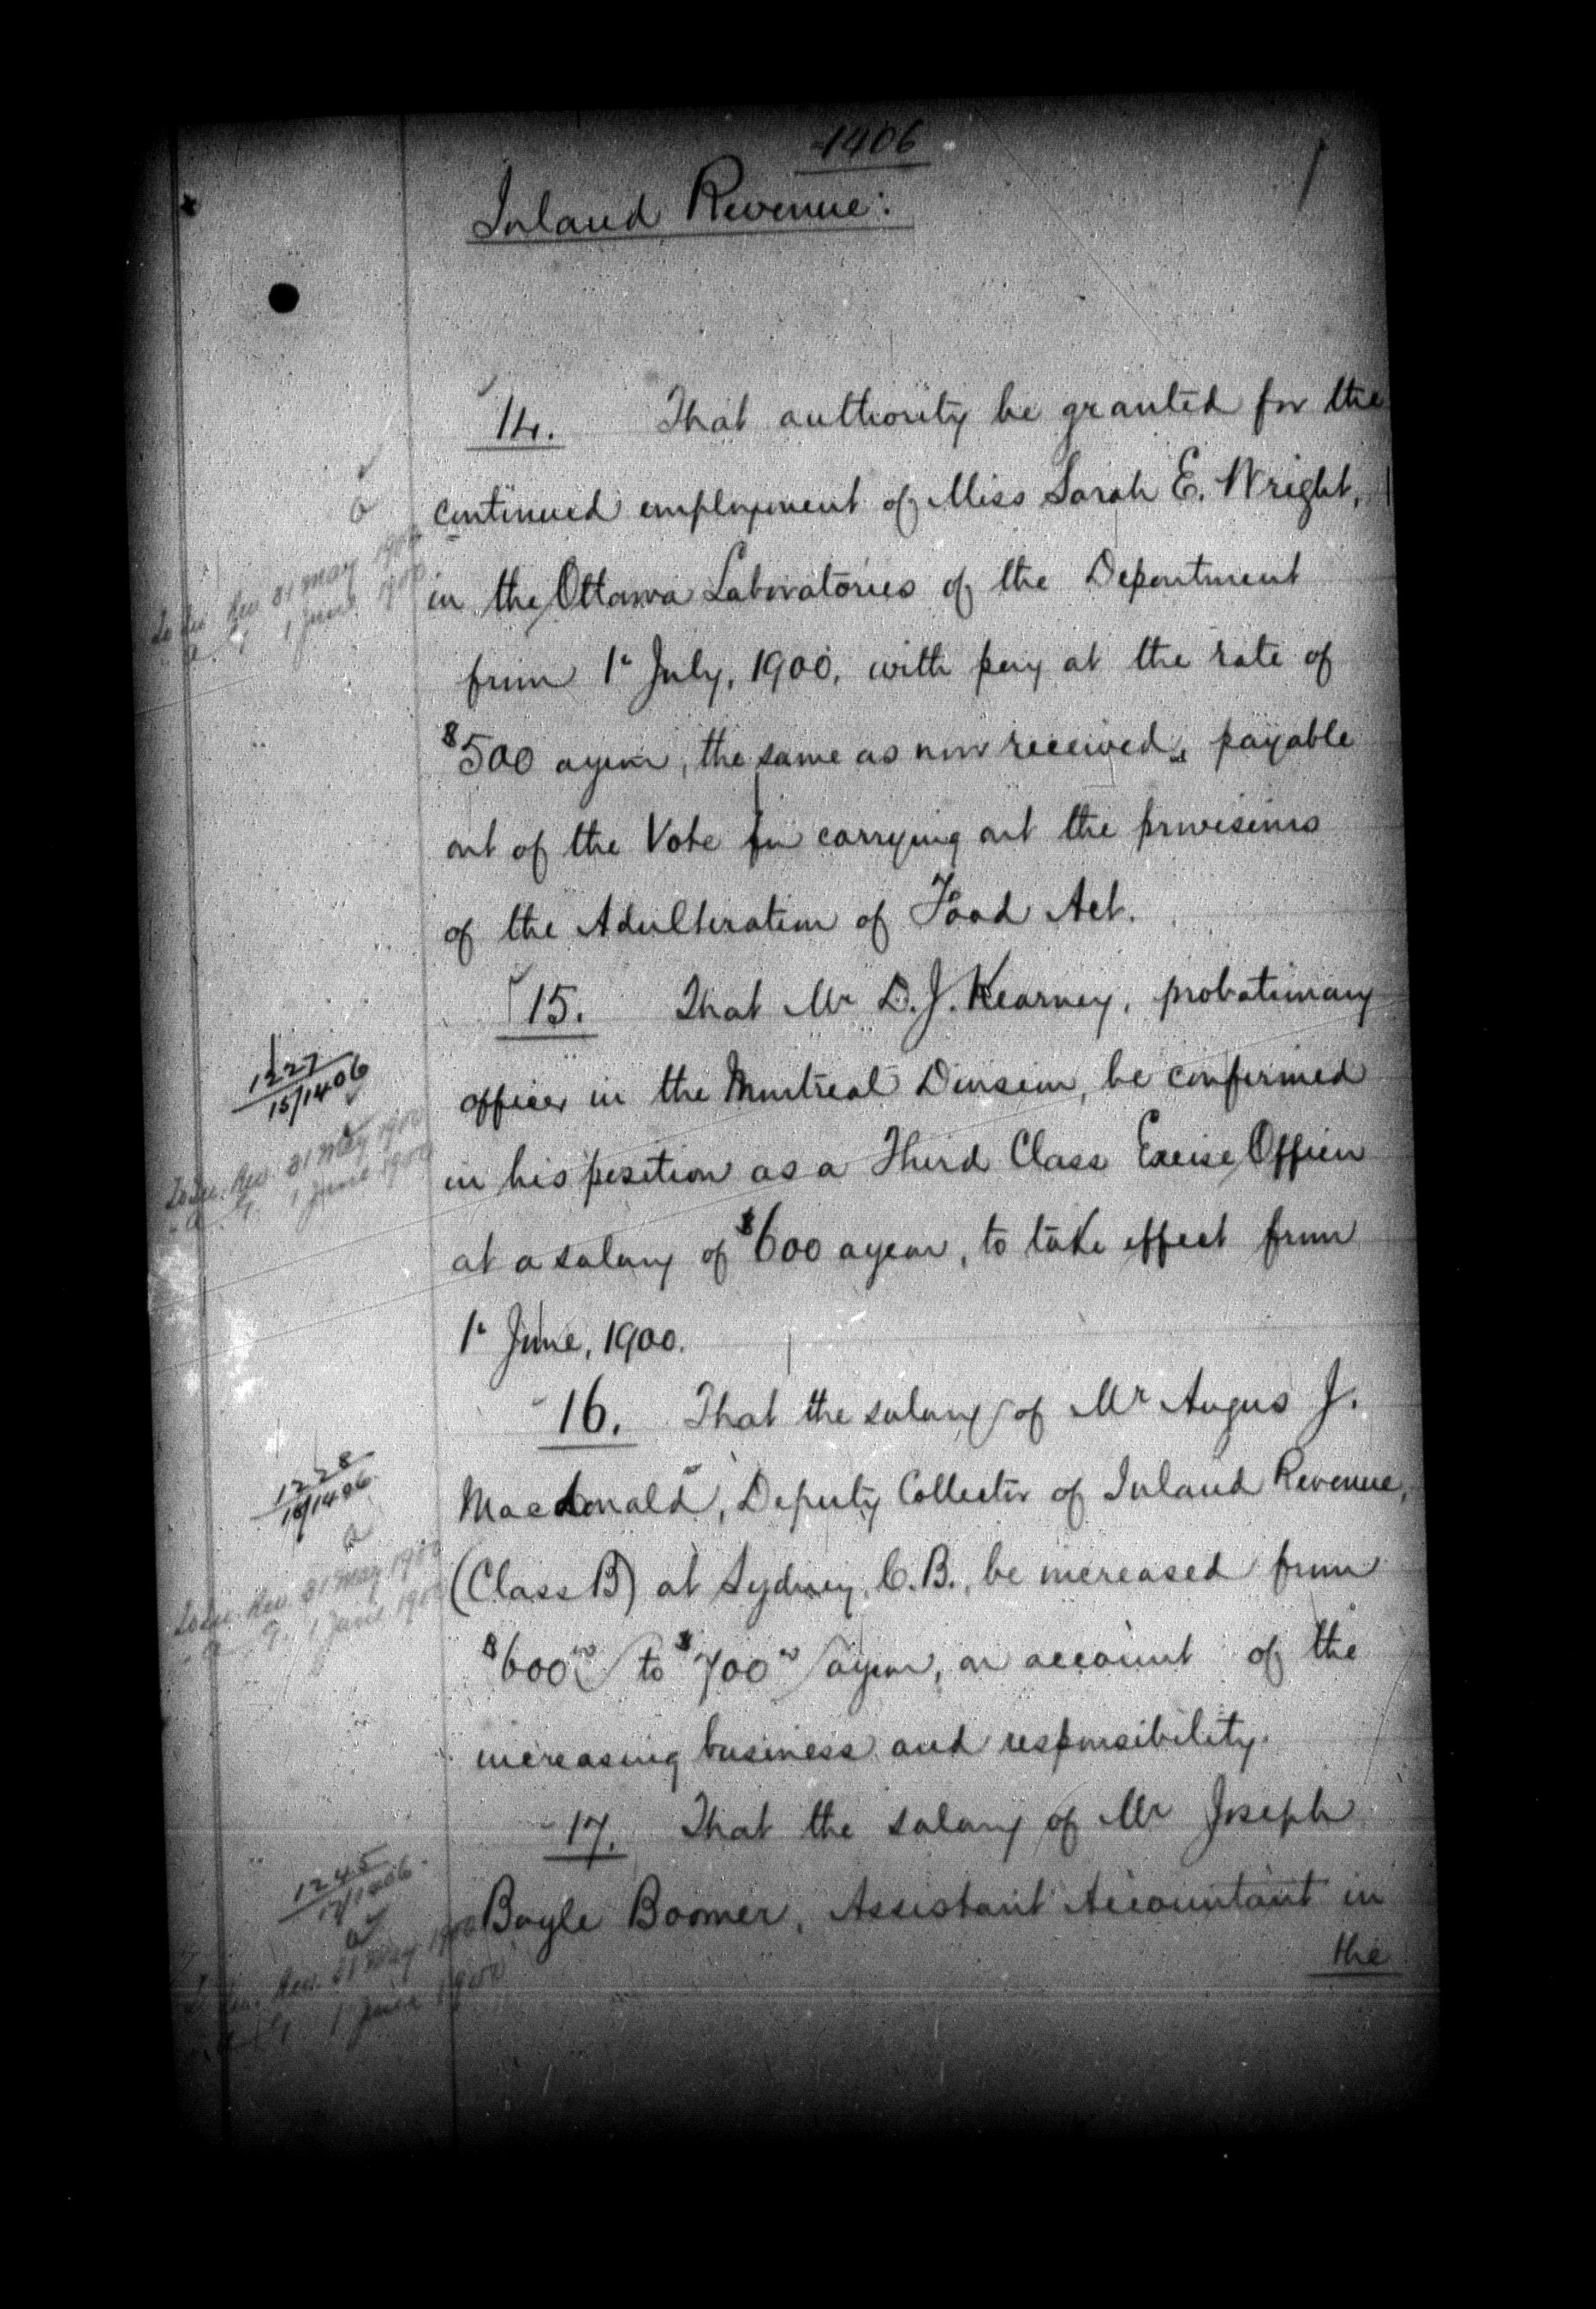 1406
Inland Revenue:
14. That authority be granted for the
continued employment of Miss Sarah E. Wright,
in the Ottawa Laboratories of the Department
from 1st July, 1900, with pay at the rate of
$500 a year, the same as now received, payable
out of the Vote for carrying out the provisions
of the Adulteration of Food Act.
31 May 1900
1 June 1900
15. That Mr D. J. Kearney, probationary
officer in the Montreal Division, be confirmed
in his position as a Third Class Excise Officer
at a salary of $600 a year, to take effect from
1st June, 1900.
1227
15/1406
Rev. 31 May 1900
1 June 1900
16. That the salary of Mr Angus J.
Macdonald, Deputy Collector of Inland Revenue,
(Class B) at Sydney, C.B., be increased from
$600 00 to $700 00 a year, on account of the
increasing business and responsibility.
1228
16/1406
Rev. 31 May 1900
1 June 1900
17. That the salary of Mr Joseph
Boyle Boomer, Assistant Accountant in
the
1245
17/1406
Rev. 31 May 1900
1 June 1900